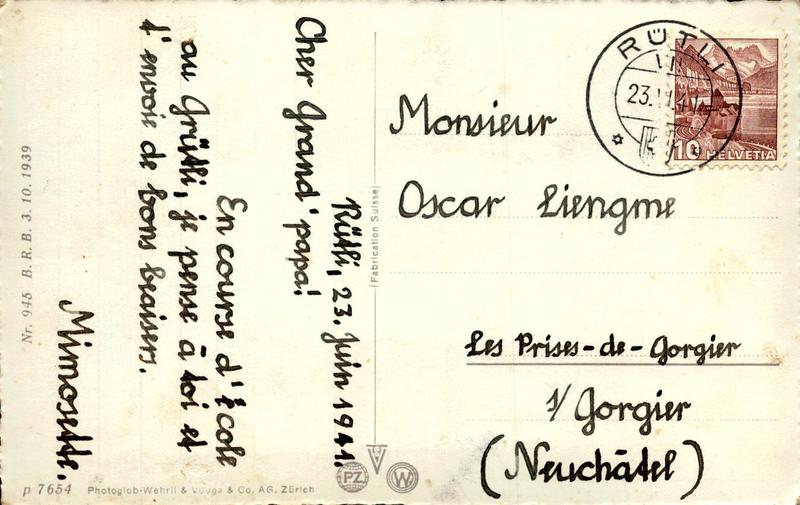 Rütli, 23. Juin 1941.
Cher Grand'papa!
En course d'école
au Grütli, je pense à toi et
t'envoie de bons baisers.
Mimosette.
Monsieur
Oscar Liengme
Les Prises-de-Gorgier
s/Gorgier
(Neuchâtel)
RÜTLI
23.VI.41
10 HELVETIA
(Fabrication Suisse)
Nr. 945 B. R. B. 3. 10. 1939
p 7654 Photoglob-Wehrli & Vouga & Co. AG. Zürich
PZ
V
W